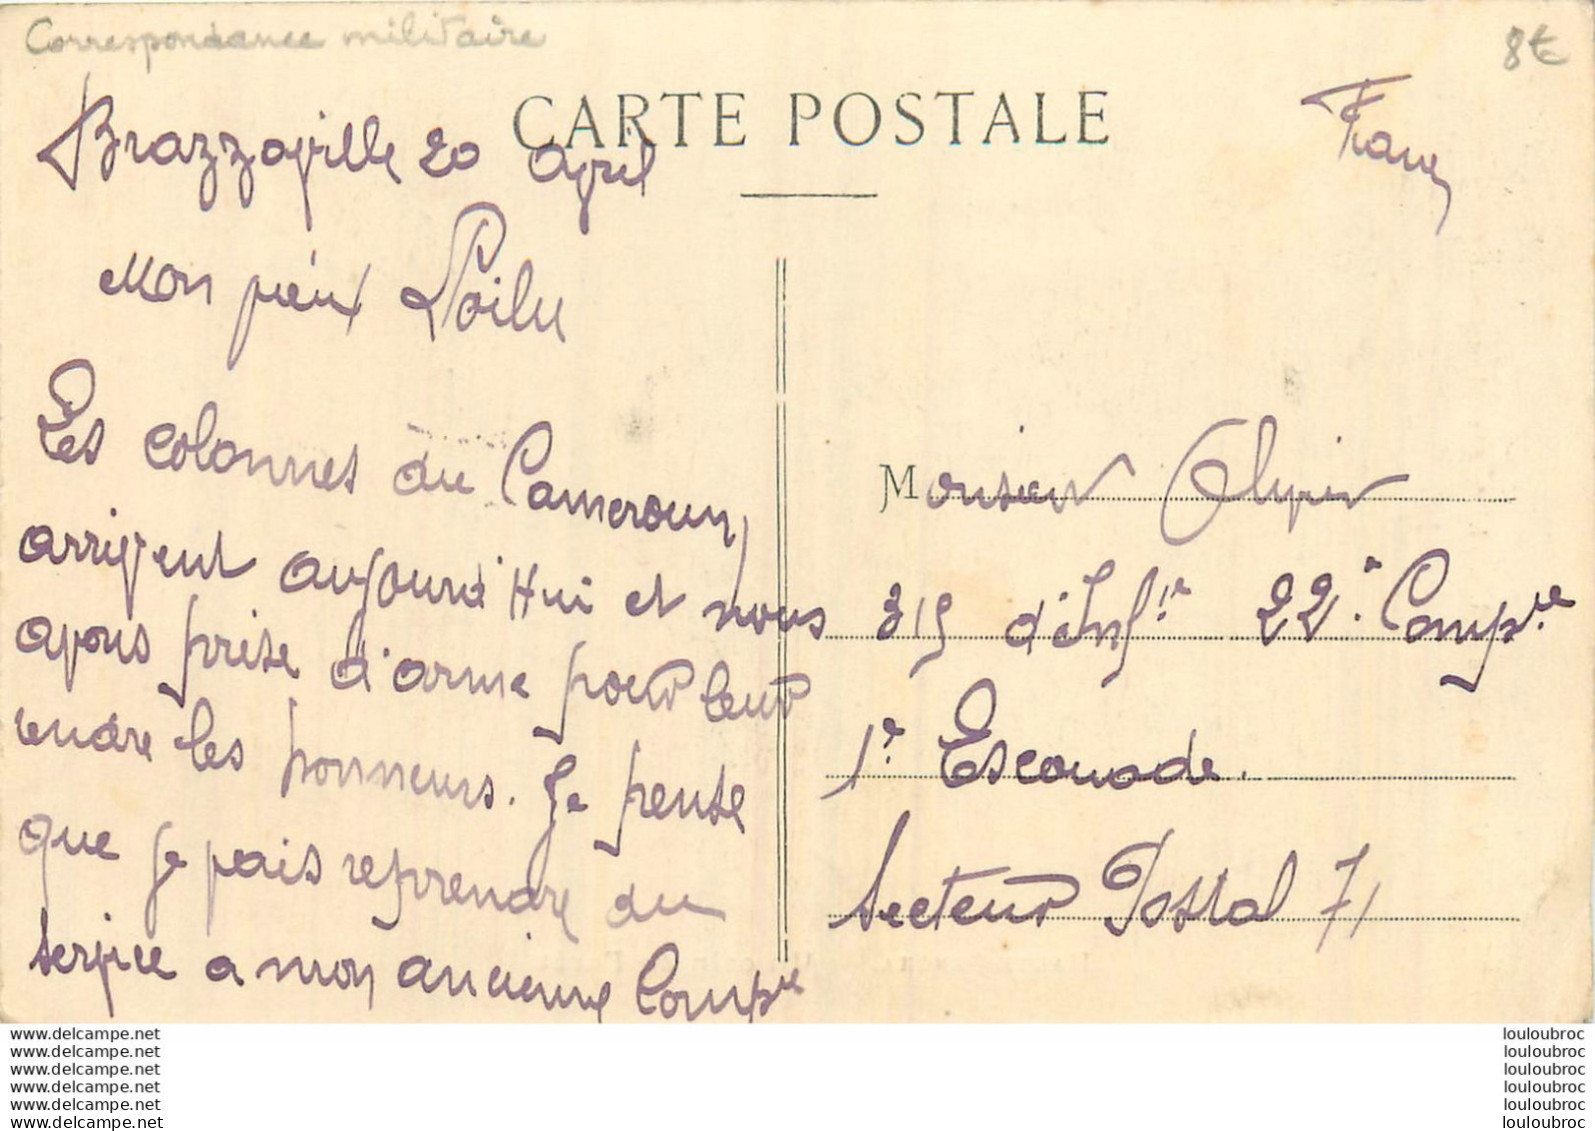 Correspondance militaire
8€
CARTE POSTALE
France
Brazzaville 20 avril
Mon vieux Poilu
Les colonnes du Cameroun
arrivent aujourd'Hui et nous
avons prise d'arme pour leur
rendre les honneurs. Je pense
que je vais reprendre du
service a mon ancienne Compie
Monsieur
319 d'Infie 22e Compie
1e Escouade.
Secteur Postal 71
www.delcampe.net
www.delcampe.net
www.delcampe.net
www.delcampe.net
www.delcampe.net
www.delcampe.net
louloubroc
louloubroc
louloubroc
louloubroc
louloubroc
louloubroc